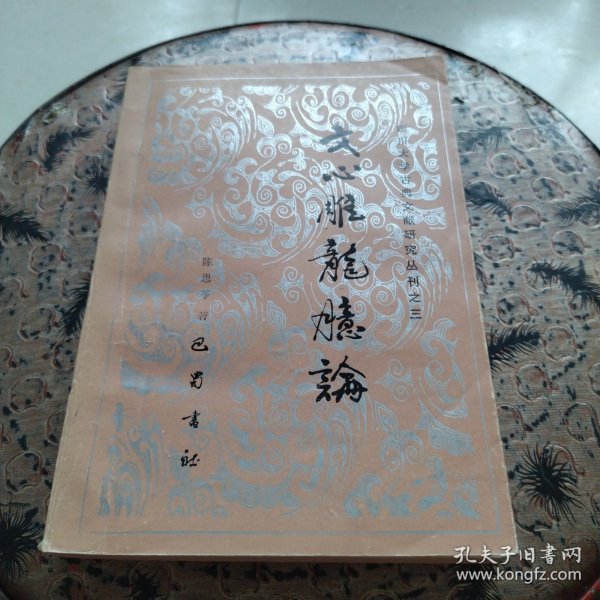 文心雕龍臆論
古典文獻研究丛刊之三
陈思苓著
巴蜀書社
孔夫子旧書网
www.kongfz.com